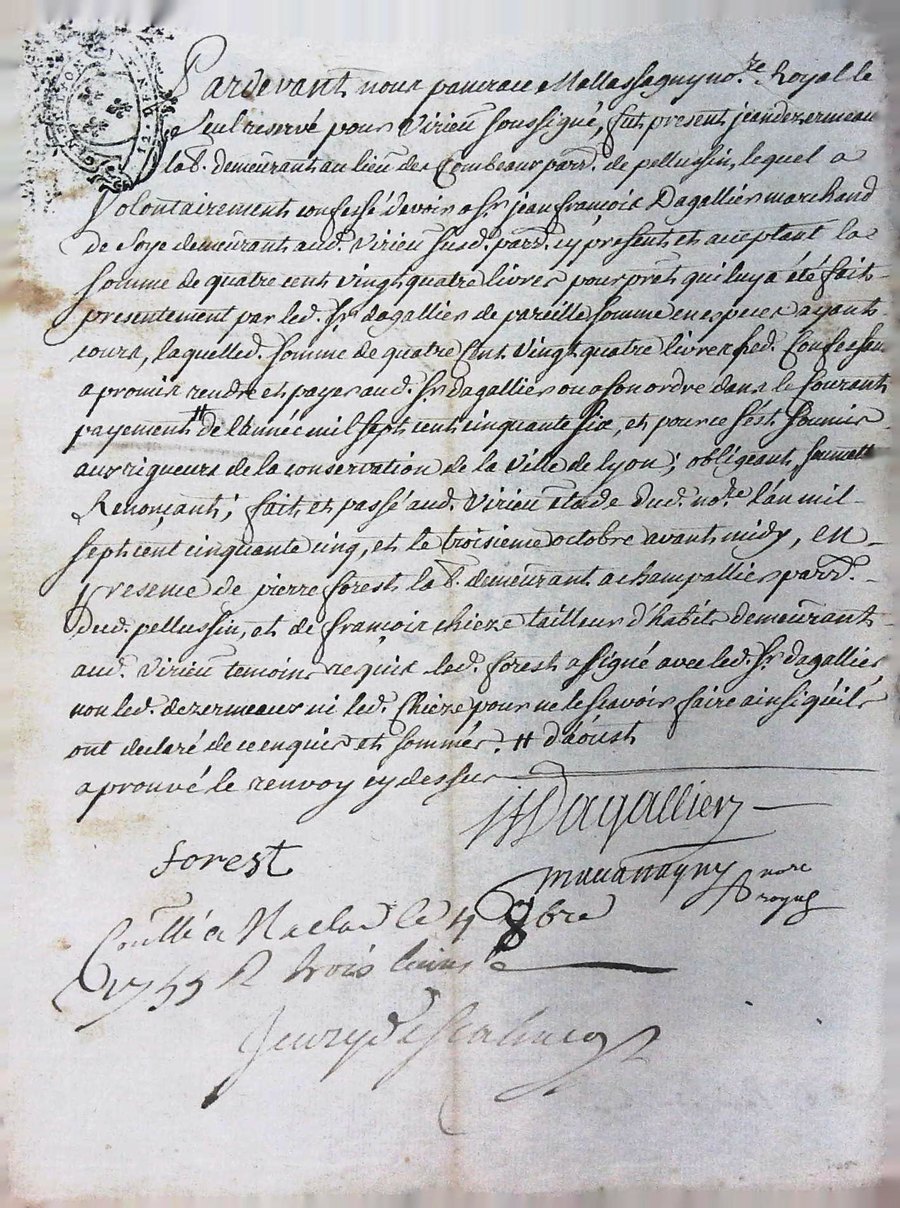 12 DEN
Pardevant nous pancrace Mallassagny no.re Royal le
Seul reservé pour Virieu soussigné, fut present jean dezermeau
lab. demeurant au lieu des Combeaux parr. de pellussin, lequel a
Volontairement confessé devoir a Sr. jean françois Dagallier marchand
de Soye demeurant aud. Virieu susd. parr. cy present et acceptant la
Somme de quatre cent vingt quatre livres pour pret qui luy a été fait
presentement par led. Sr. dagallier de pareille somme en especes ayant
cours, laquelle d. somme de quatre Cent Vingt quatre livres led. Confessant
a promis rendre et payer aud. Sr. dagallier ou a son ordre dans le Courant
payement # de l'année mil sept cent cinquante six, et pour ce s'est soumis
aux rigueurs de la conservation de la Ville de lyon; obligeant, soumett
Renonçant; fait et passé aud. Virieu étude dud. no.re l'an mil
sept cent cinquante cinq, et le troisieme octobre avant midy, en
presence de pierre forest lab. demeurant a champallier parr.
dud. pellussin, et de françois chieze tailleur d'habits demeurant
aud. Virieu temoins requis led. forest a signé avec led. Sr. dagallier
non led. dezermeaux ni led. Chieze pour ne le scavoir faire ainsi qu'ils
ont declaré de ce enquis et sommés. # d'aoust
aprouvé le renvoy cy dessus
JF Dagallier
forest
Mallassagny nore
royal
Conllé a Maclas le 4 8bre
1755 R trois livres